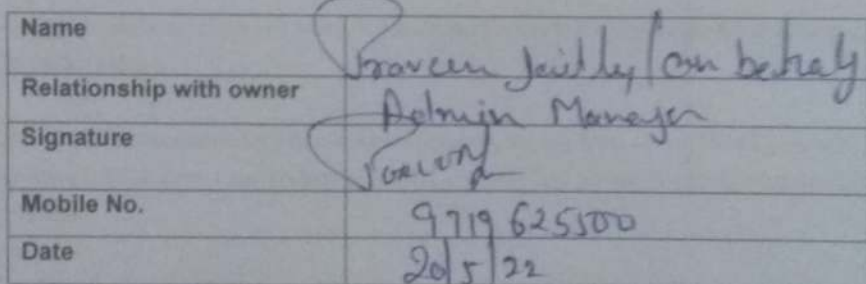 Name Praveen Jaitley / on behalf
Relationship with owner Admin Manager
Signature
Mobile No. 9719625500
Date 20/5/22